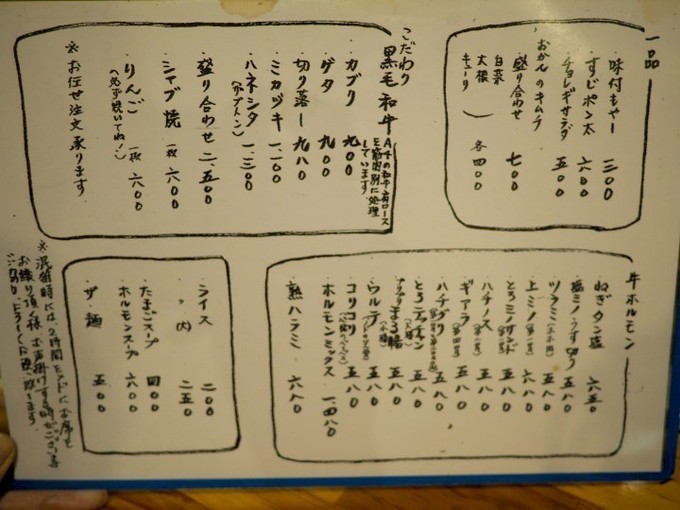 一品
味付もやし 三〇〇
すじポン太 六〇〇
チョレギサラダ 五〇〇
おかんのキムチ
盛り合わせ 七〇〇
白菜
大根
キューリ 各 四〇〇
こだわり
黒毛和牛 A4の和牛肩ロース
を筋肉別に処理
しています。
・カブリ 九〇〇
・ゲタ 九〇〇
・切り落し 九八〇
・ミカヅキ 一、一〇〇
・ハネシタ 一、三〇〇
(ザブトン)
・盛り合わせ 二、五〇〇
・シャブ焼 一枚 六〇〇
・りんご 一枚 六〇〇
(必ず焼いてね!)
※お任せ注文承ります
牛ホルモン
・ねぎタン塩 六五〇
・塩ミノうす切り 五八〇
・ツラミ 五八〇
・上ミノ(第一胃) 六八〇
・とろミノサンド 五八〇
・ハチノス 五八〇
・ギアラ(第四胃) 五八〇
・ハチグリ 五八〇
・とろテッチャン(大腸) 五八〇
まる腸(小腸) 五八〇
・ウルテ 五八〇
・コリコリ 五八〇
・ホルモンミックス 一、四八〇
・熟ハラミ 六八〇
・ライス 二〇〇
〃 (大) 二五〇
・たまごスープ 四〇〇
・ホルモンスープ 六〇〇
・ザ・麺 五〇〇
※混雑時には、2時間をメドにお席を
お譲り頂く様、お声掛けする